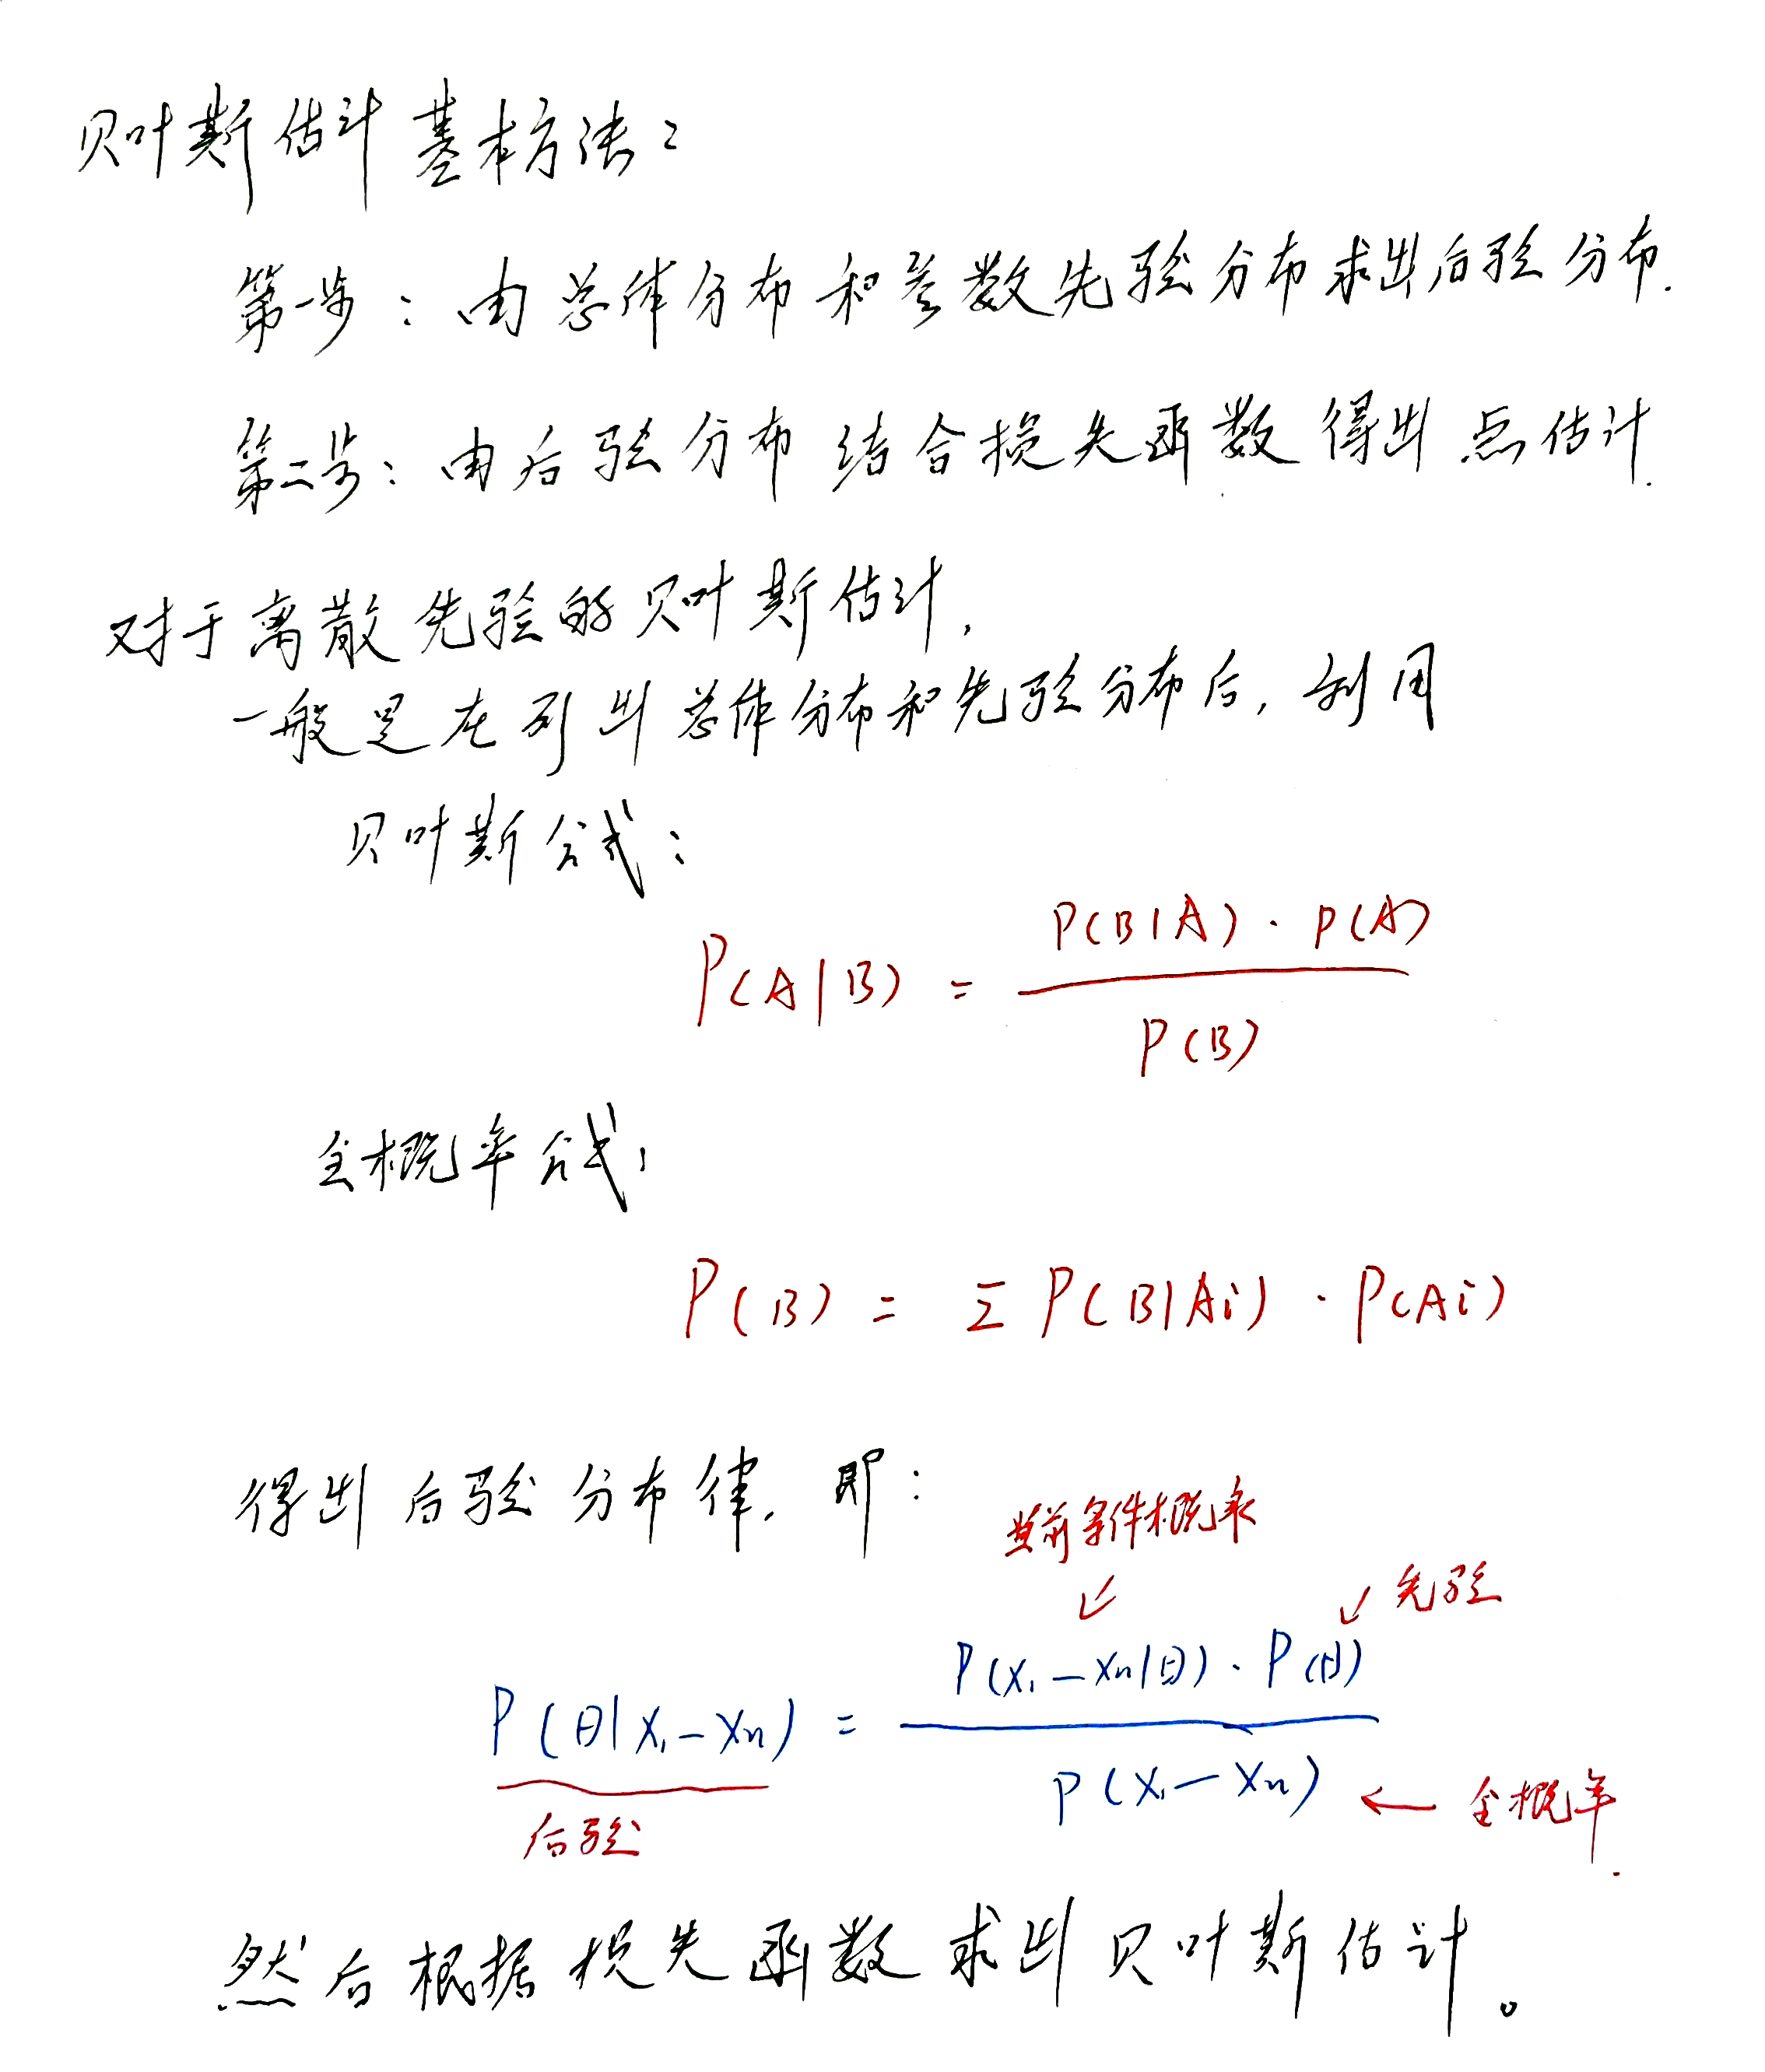 贝叶斯估计基本方法：
第一步：由总体分布和参数先验分布求出后验分布.
第二步：由后验分布结合损失函数得出点估计.
对于离散先验的贝叶斯估计,
一般是在列出总体分布和先验分布后, 利用
贝叶斯公式：
P(A|B) = P(B|A) · P(A) / P(B)
全概率公式：
P(B) = Σ P(B|Ai) · P(Ai)
得出后验分布律. 即：
当前条件概率
先验
P(θ|X₁—Xn) = P(X₁—Xn|θ) · P(θ) / P(X₁—Xn) ← 全概率.
后验
然后根据损失函数求出贝叶斯估计。